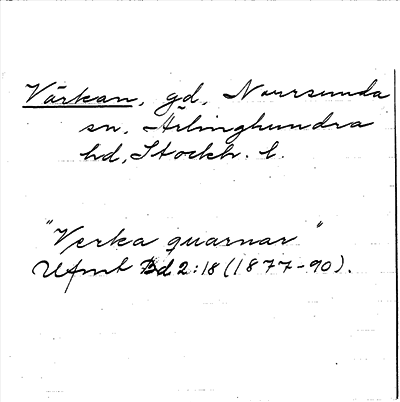 Värkan, gd, Norrsunda
sn, Ärlinghundra
hd, Stockh. l.
"Verka quarnar"
Ufmt Bd 2:18 (1877-90).